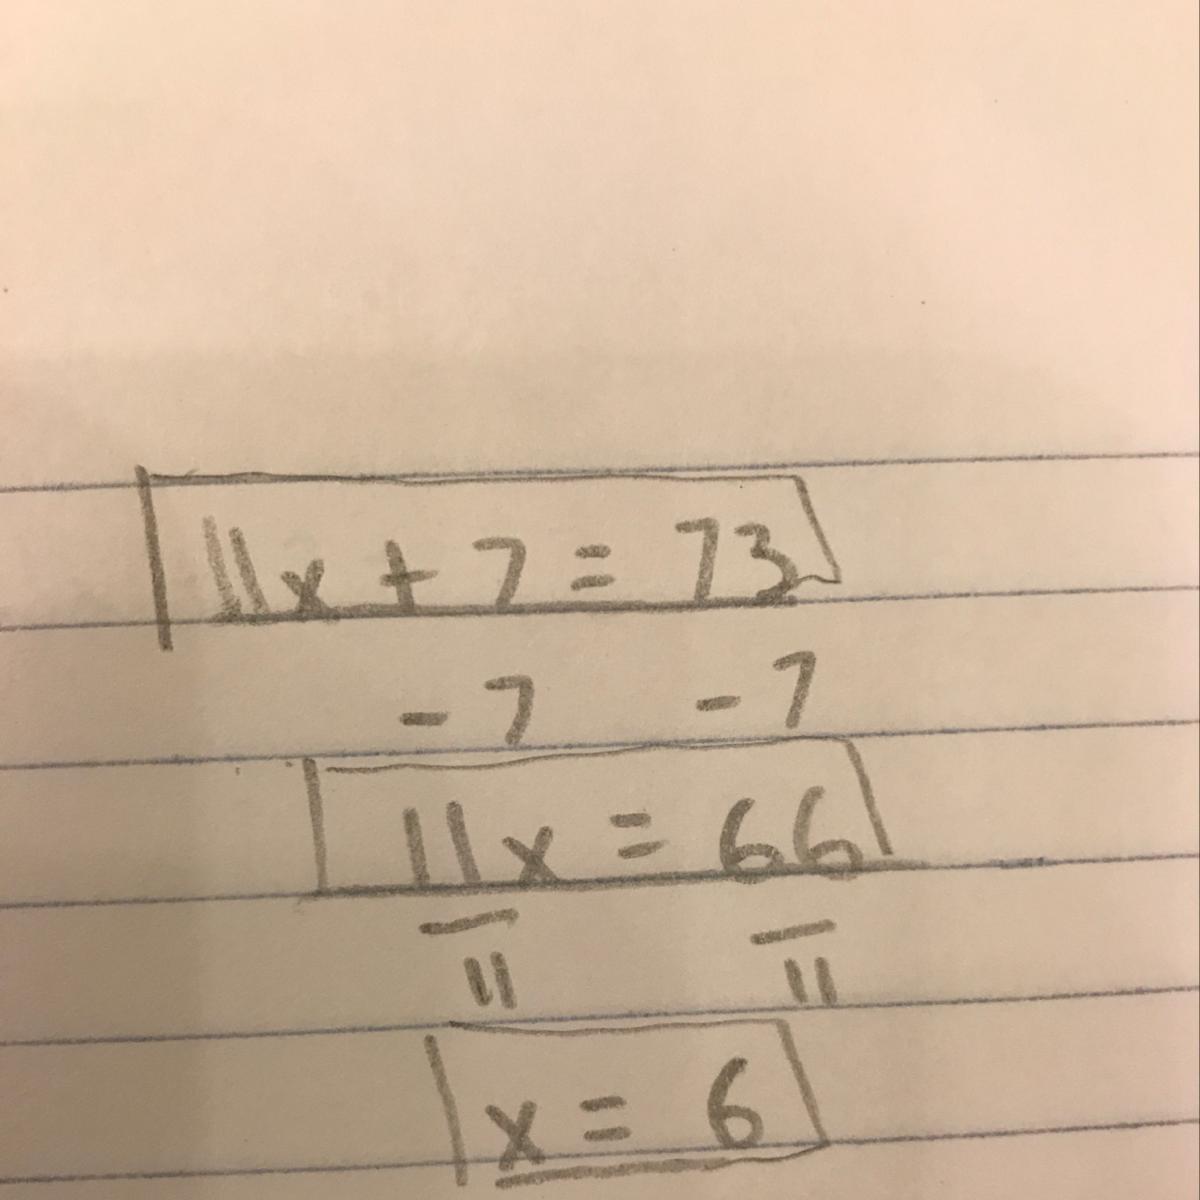 11x + 7 = 73
- 7 - 7
11x = 66
11 11
x = 6